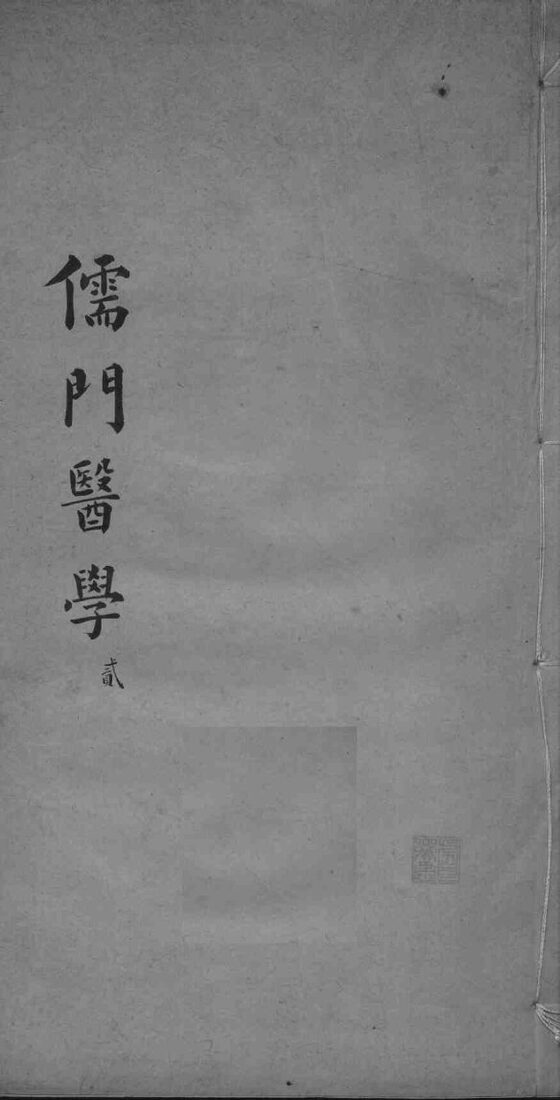 儒門醫學
貳